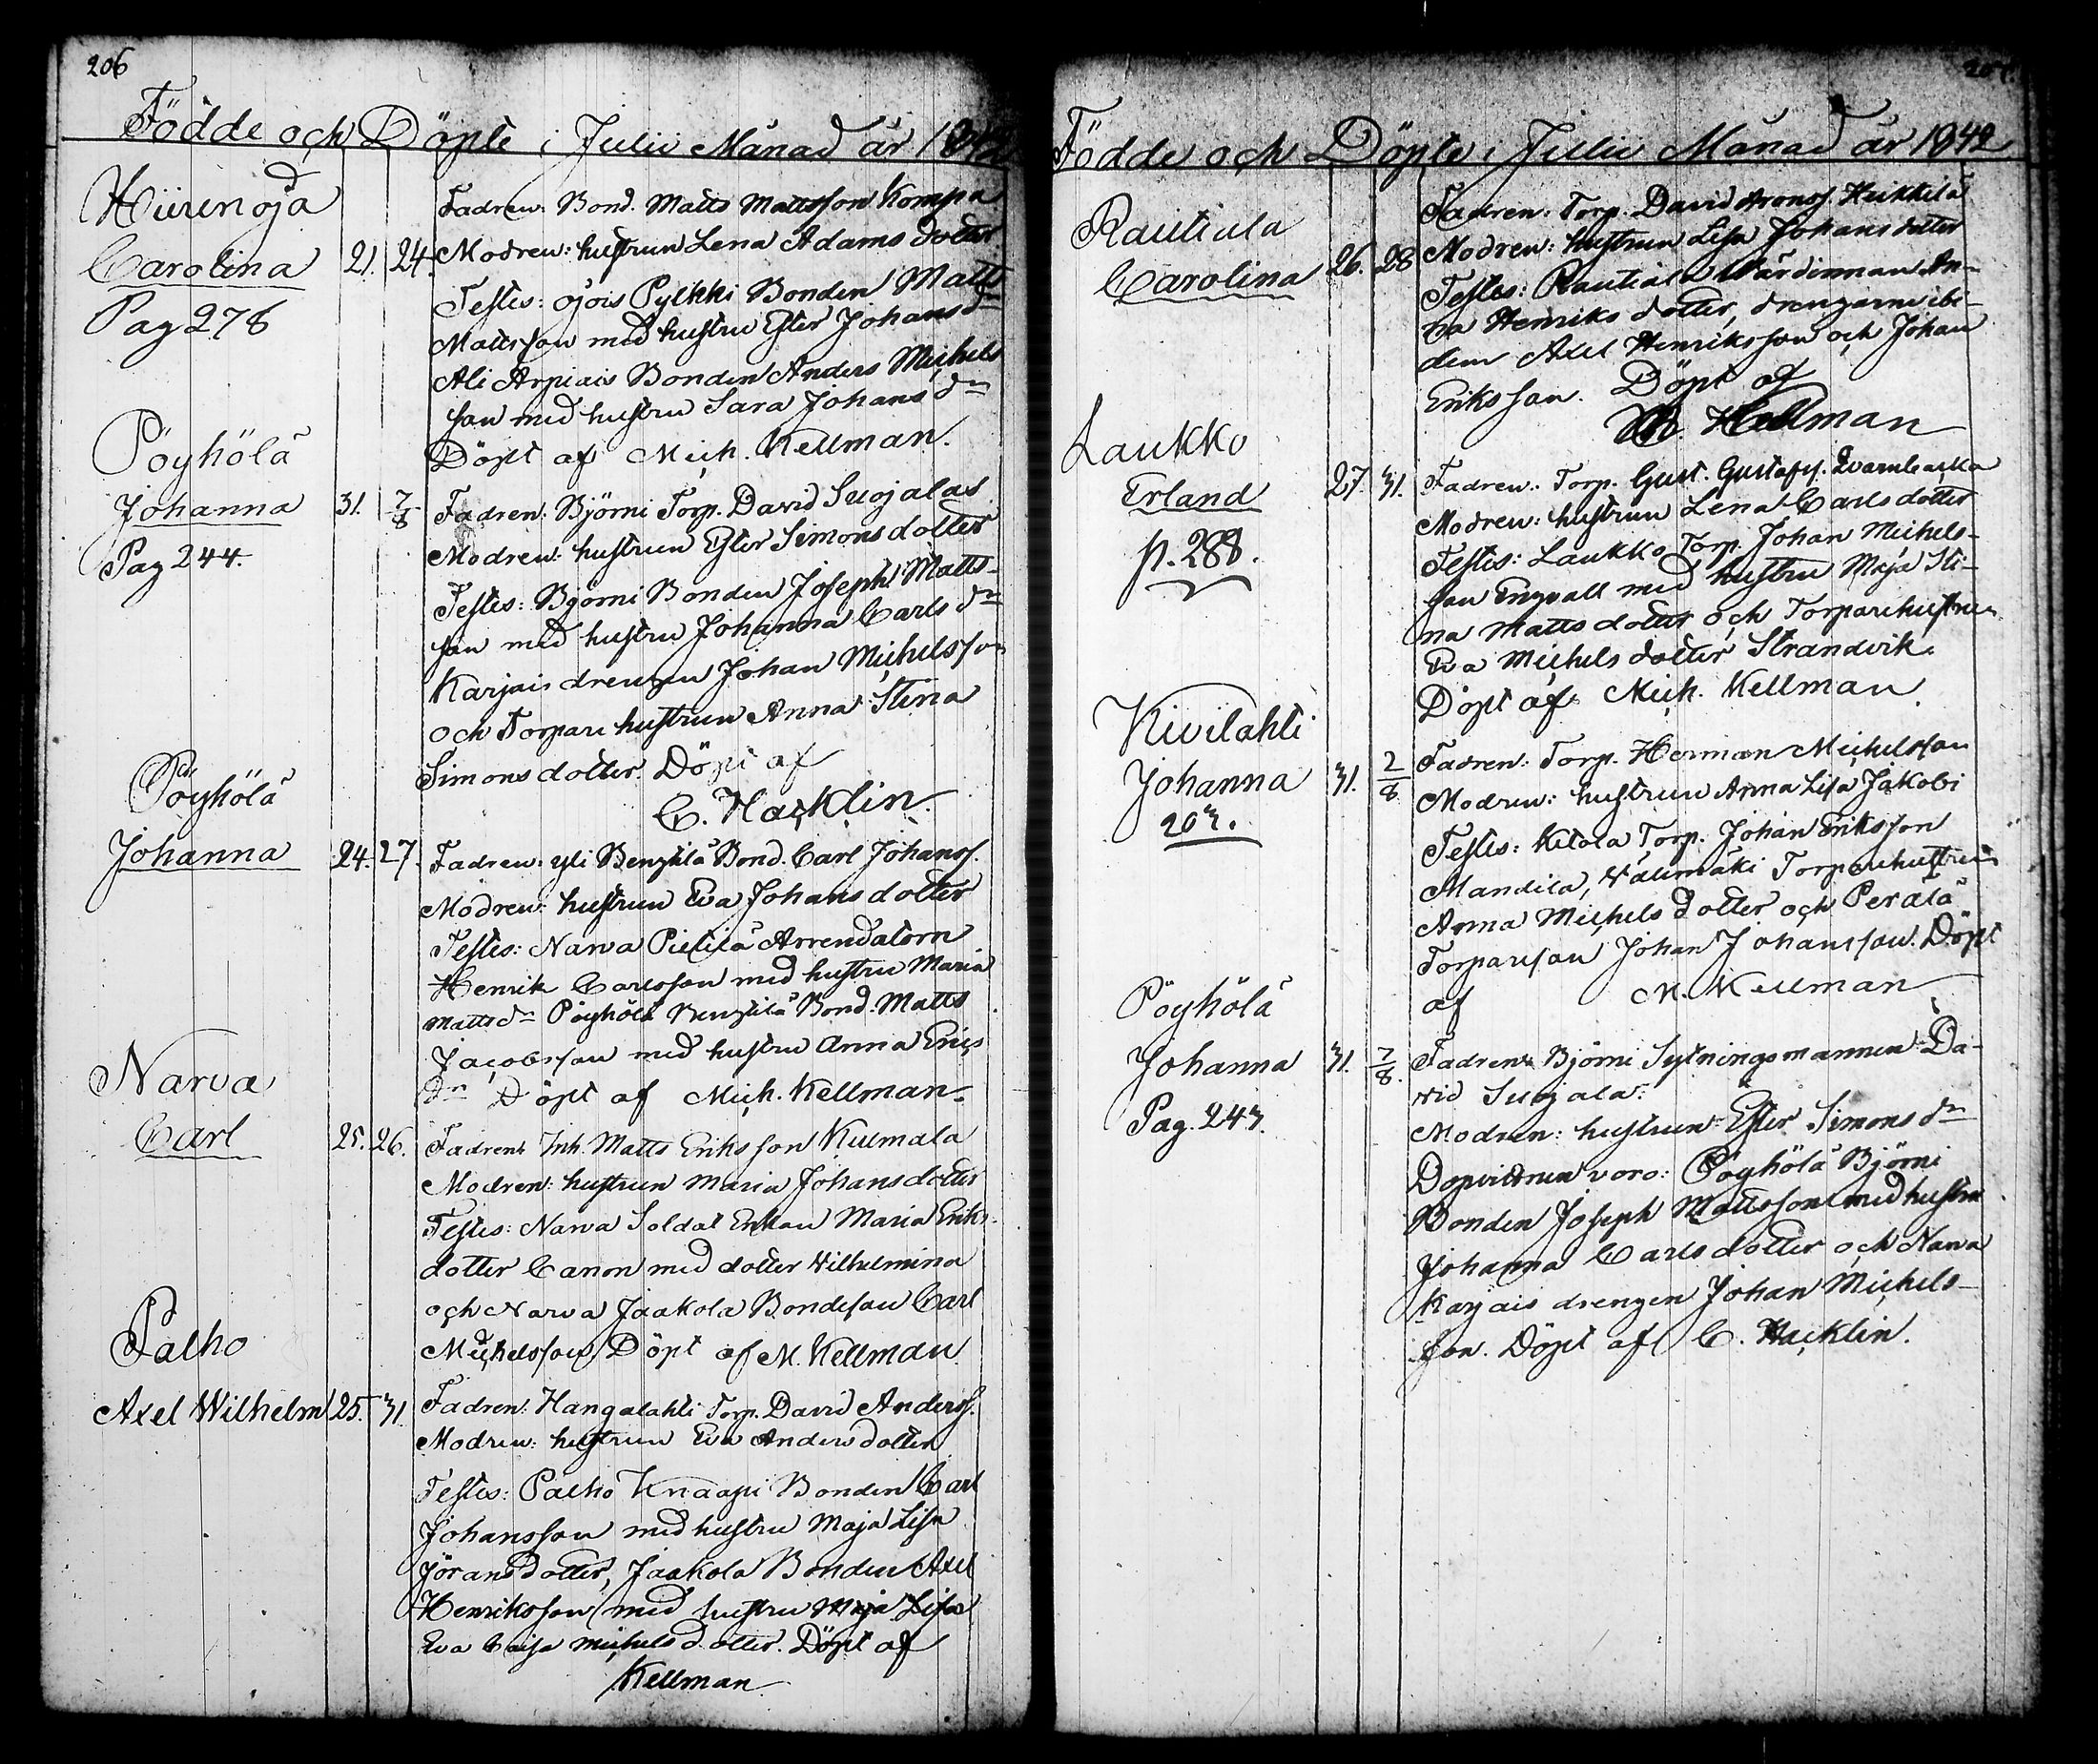 206
Födde och Döpte i Julii Månad år 1842
Hiirenoja
Carolina 21. 24.
Pag 278
Fadren: Bond. Matts Mattsson Kompa
Modren: hustrun Lena Adams dotter
Testes: ojois Pylkki Bonden Matts
Mattsson med hustru Ester Johans dr
Ali Arpiais Bonden Anders Michels
son med hustru Sara Johans dr
Döpt af Mich. Kellman.
Pöyhölä
Johanna 31. 7/8
Pag 244.
Fadren: Björni Torp. David Suojalas
Modren: hustrun Ester Simons dotter
Testes: Björni Bonden Joseph Matts-
son med hustru Johanna Carls dr
Karjais drengen Johan Michelsson
och Torpare hustrun Anna Stina
Simons dotter. Döpt af
C. Hacklin.
Pöyhölä
Johanna 24. 27.
Fadren: yli Bengtilä Bond. Carl Johanss.
Modren: hustrun Eva Johans dotter
Testes: Narva Pietilä Arrendatorn
Henrik Carlsson med hustru Maria
Matts dr Pöyhölä Bengtilä Bond. Matts
Jacobsson med hustru Anna Erics
dr Döpt af Mich. Kellman.
Narva
Carl 25. 26.
Fadren: Inh. Matts Eriksson Kulmala
Modren: hustrun Maria Johans dotter
Testes: Narva Soldat Enkan Maria Eriks
dotter Canon med dotter Wilhelmina
och Narva Jaakola Bondeson Carl
Michelsson Döpt af M. Kellman
Palho
Axel Wilhelm 25. 31.
Fadren: Hangalahti Torp. David Anderss.
Modren: hustrun Eva Anders dotter
Testes: Palho Knaapi Bonden Carl
Johansson med hustru Maja Lisa
Jörans dotter, Jaakola Bonden Axel
Henriksson med hustru Maja Lisa
Eva Caisa Michels dotter. Döpt af
Kellman
207.
Födde och Döpte i Julii Månad år 1842
Rautiala
Carolina 26. 28
Fadren: Torp. David Aronss. Heikkilä
Modren: hustrun Lisa Johans dotter
Testes: Rautiala Wärdinnan An-
na Henriks dotter, drengarne ibi-
dem Axel Henriksson och Johan
Eriksson. Döpt af
M. Kellman
Laukko
Erland 27. 31.
p. 288.
Fadren: Torp. Gust. Gustafss. Qvarnbacka
Modren: hustrun Lena Carls dotter
Testes: Laukko Torp. Johan Michels-
son Engvall med hustru Maja Sti-
na Matts dotter och Torpare hustrun
Eva Michels dotter Strandvik.
Döpt af Mich. Kellman
Kivilahti
Johanna 31. 2/8
203.
Fadren: Torp. Herman Michelsson
Modren: hustrun Anna Lisa Jakobi
Testes: Kitola Torp. Johan Eriksson
Mandila, Välimäki Torpare hustrun
Anna Michels dotter och Perälä
Torpareson Johan Johansson. Döpt
af M. Kellman
Pöyhölä
Johanna 31. 7/8.
Pag. 243.
Fadren: Björni Sytningsmannen Da-
vid Suojala:
Modren: hustrun Ester Simons dr
Dopvittnen voro: Pöyhölä Björni
Bonden Joseph Mattsson med hustru
Johanna Carls dotter och Narva
Karjais drengen Johan Michels-
son. Döpt af C. Hacklin.